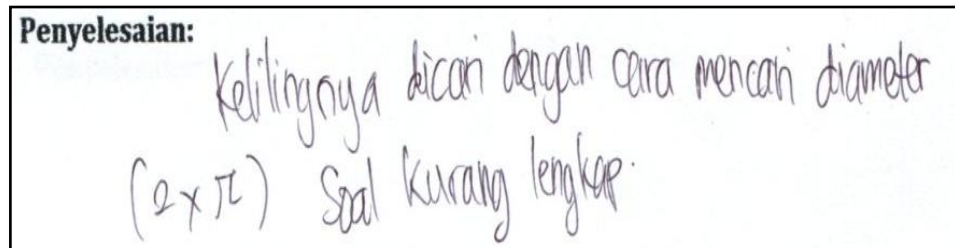 Penyelesaian:
Kelilingnya dicari dengan cara mencari diameter
(2 x π) Soal kurang lengkap.